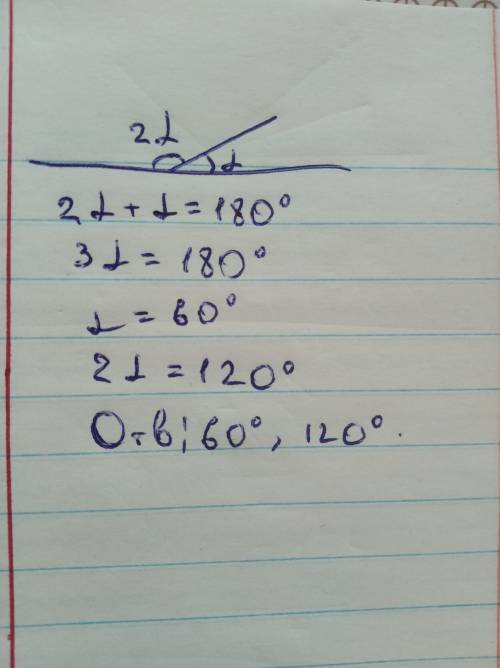 2α
α
2α + α = 180°
3α = 180°
α = 60°
2α = 120°
О-в; 60°, 120°.